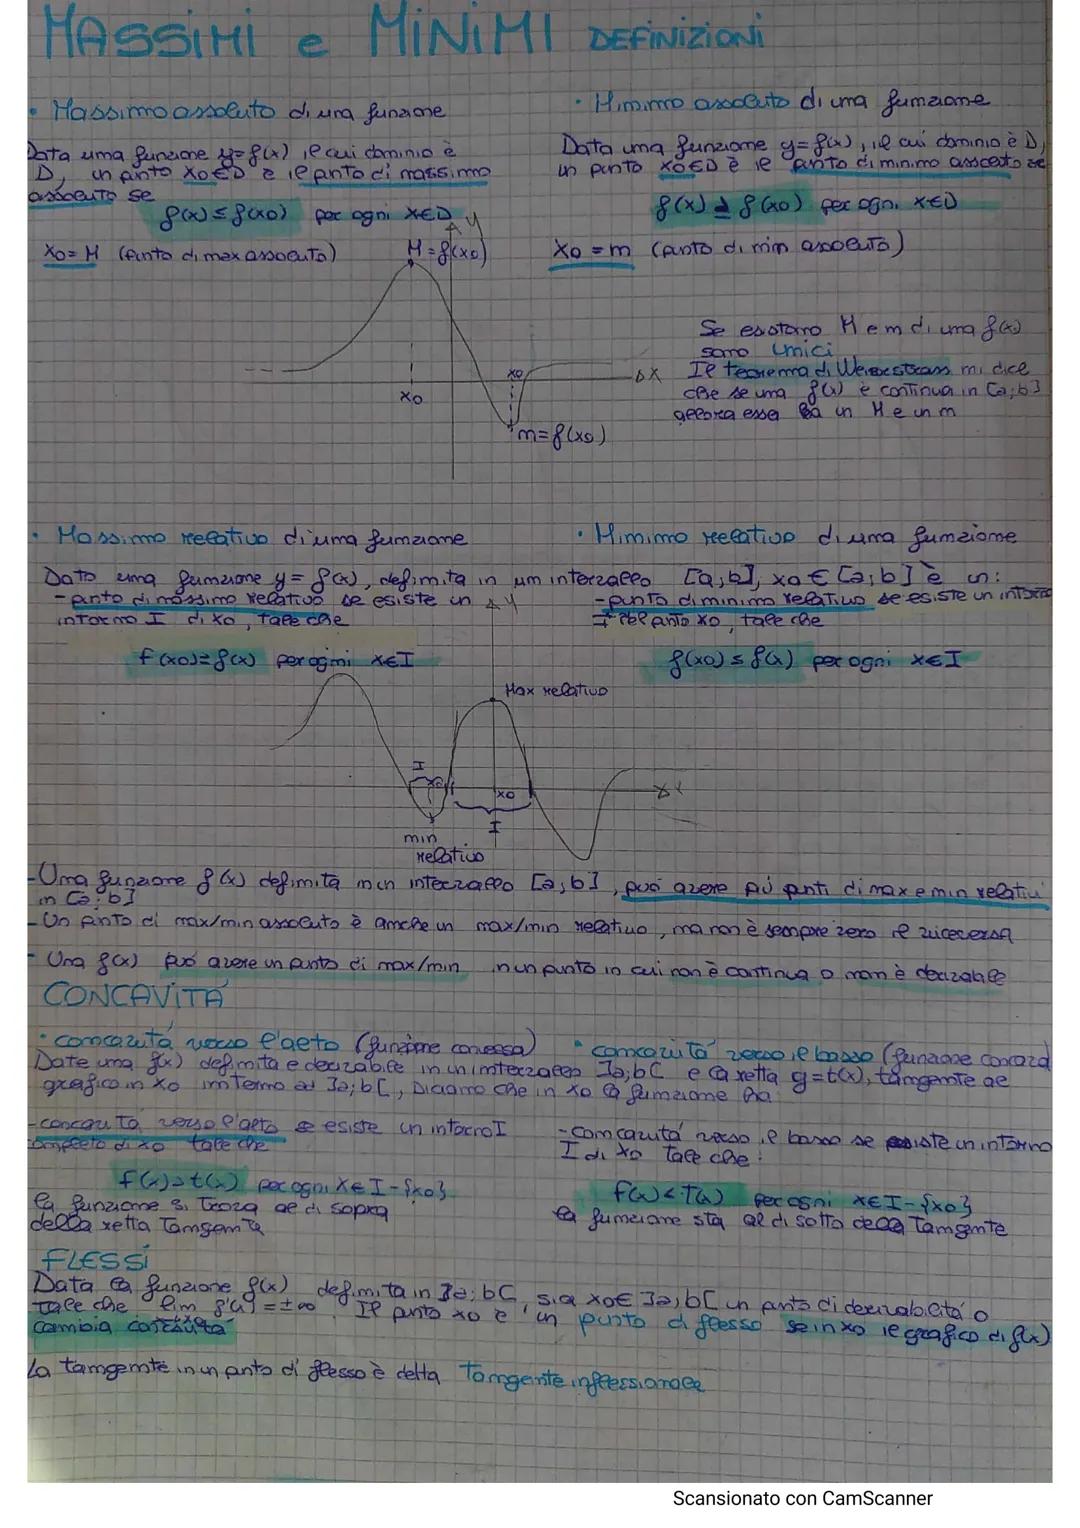 MASSIMI e MINIMI DEFINIZIONI
• Massimo assoluto di una funzione
Data una funzione y=f(x), il cui dominio è
D, un punto x0∈D è il punto di massimo
assoluto se
f(x) ≤ f(x0) per ogni x∈D
x0 = M (punto di max assoluto)
• Minimo assoluto di una funzione
Data una funzione y=f(x), il cui dominio è D,
un punto x0∈D è il punto di minimo assoluto se
f(x) ≥ f(x0) per ogni x∈D
x0 = m (punto di min assoluto)
y
M=f(x0)
x0
x0
x
m=f(x0)
Se esistono M e m di una f(x)
sono unici
Il teorema di Weierstrass mi dice
che se una f(x) è continua in [a;b]
allora essa ha un M e un m
• Massimo relativo di una funzione
• Minimo relativo di una funzione
Data una funzione y=f(x), definita in un intervallo [a;b], x0∈[a;b] è un:
- punto di massimo relativo se esiste un
intorno I di x0, tale che
f(x0) ≥ f(x) per ogni x∈I
- punto di minimo relativo se esiste un intorno
I del punto x0, tale che
f(x0) ≤ f(x) per ogni x∈I
y
Max relativo
I
x0
x0
x
I
min
relativo
- Una funzione f(x) definita in un intervallo [a;b], può avere più punti di max e min relativi
in [a;b]
- Un punto di max/min assoluto è anche un max/min relativo, ma non è sempre vero il viceversa
- Una f(x) può avere un punto di max/min in un punto in cui non è continua o non è derivabile
CONCAVITÀ
• concavità verso l'alto (funzione convessa)
• concavità verso il basso (funzione concava)
Date una f(x) definita e derivabile in un intervallo ]a;b[ e la retta y=t(x), tangente al
grafico in x0 interno ad ]a;b[, Diciamo che in x0 la funzione ha:
- concavità verso l'alto se esiste un intorno I
completo di x0 tale che
f(x)>t(x) per ogni x∈I-{x0}
la funzione si trova al di sopra
della retta Tangente
- concavità verso il basso se esiste un intorno
I di x0 tale che:
f(x)<T(x) per ogni x∈I-{x0}
la funzione sta al di sotto della Tangente
FLESSI
Data la funzione f(x) definita in ]a;b[, sia x0∈]a;b[ un punto di derivabilità o
tale che lim f'(x)=±∞. Il punto x0 è un punto di flesso se in x0 il grafico di f(x)
cambia concavità
La tangente in un punto di flesso è detta Tangente inflessionale
Scansionato con CamScanner